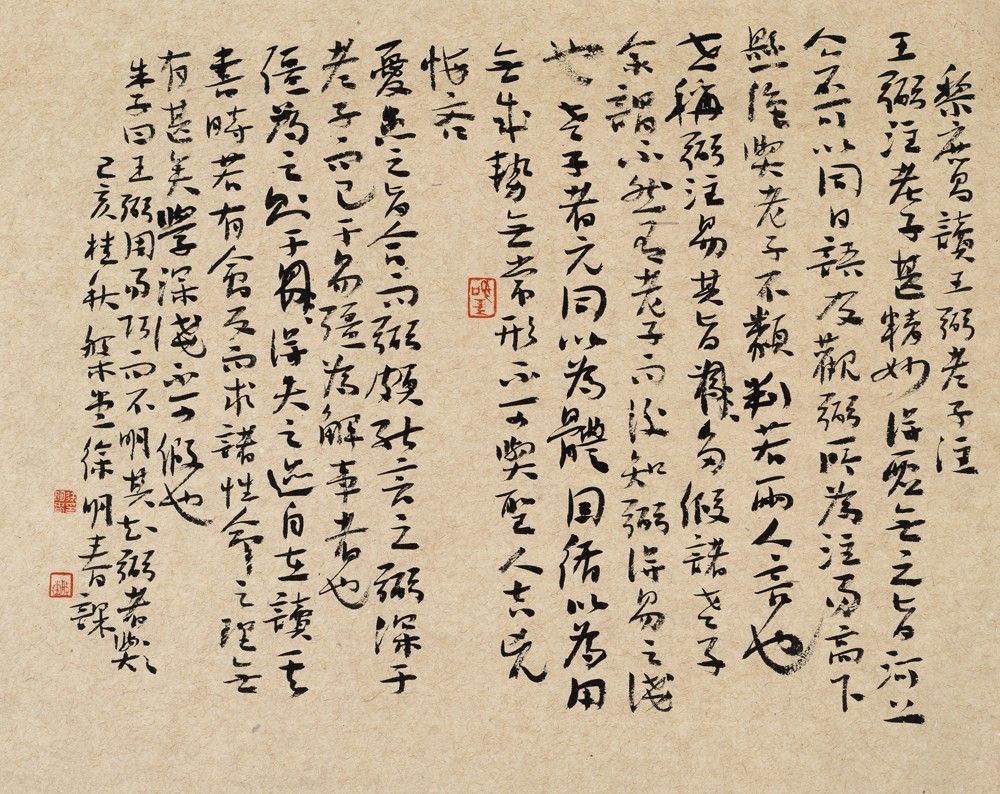 黎庶昌讀王弼老子注
王弼注老子甚精妙得虛無之旨河上
公不可以同日語及觀弼所為注易高下
懸隔與老子不類判若兩人言也
世稱弼注易其旨多假諸老子
余謂不然善老子而後知弼得易之淺
也老子者元同以為體因循以為用
無成勢無常形不可與聖人吉凶
悔吝
憂患之旨合而弼頗能言之弼深于
老子而已于易彊為解事者也
儘為之則于得失之迹自在讀其
書時若有會反而求諸性命之理無
有甚矣學深淺不可假也
朱子曰王弼周易巧而不明其知弼者與
己亥桂秋堂徐明春課